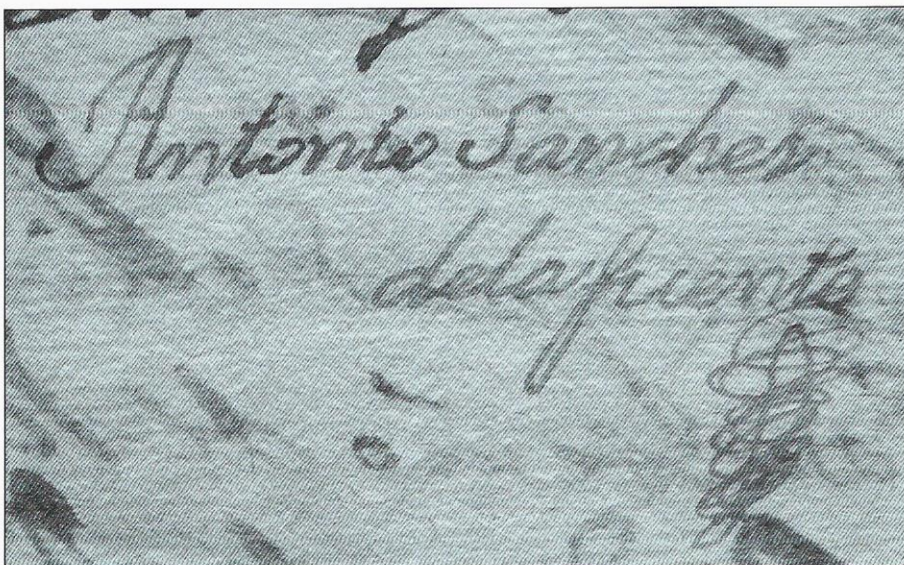 Antonio Sanches
delafuente